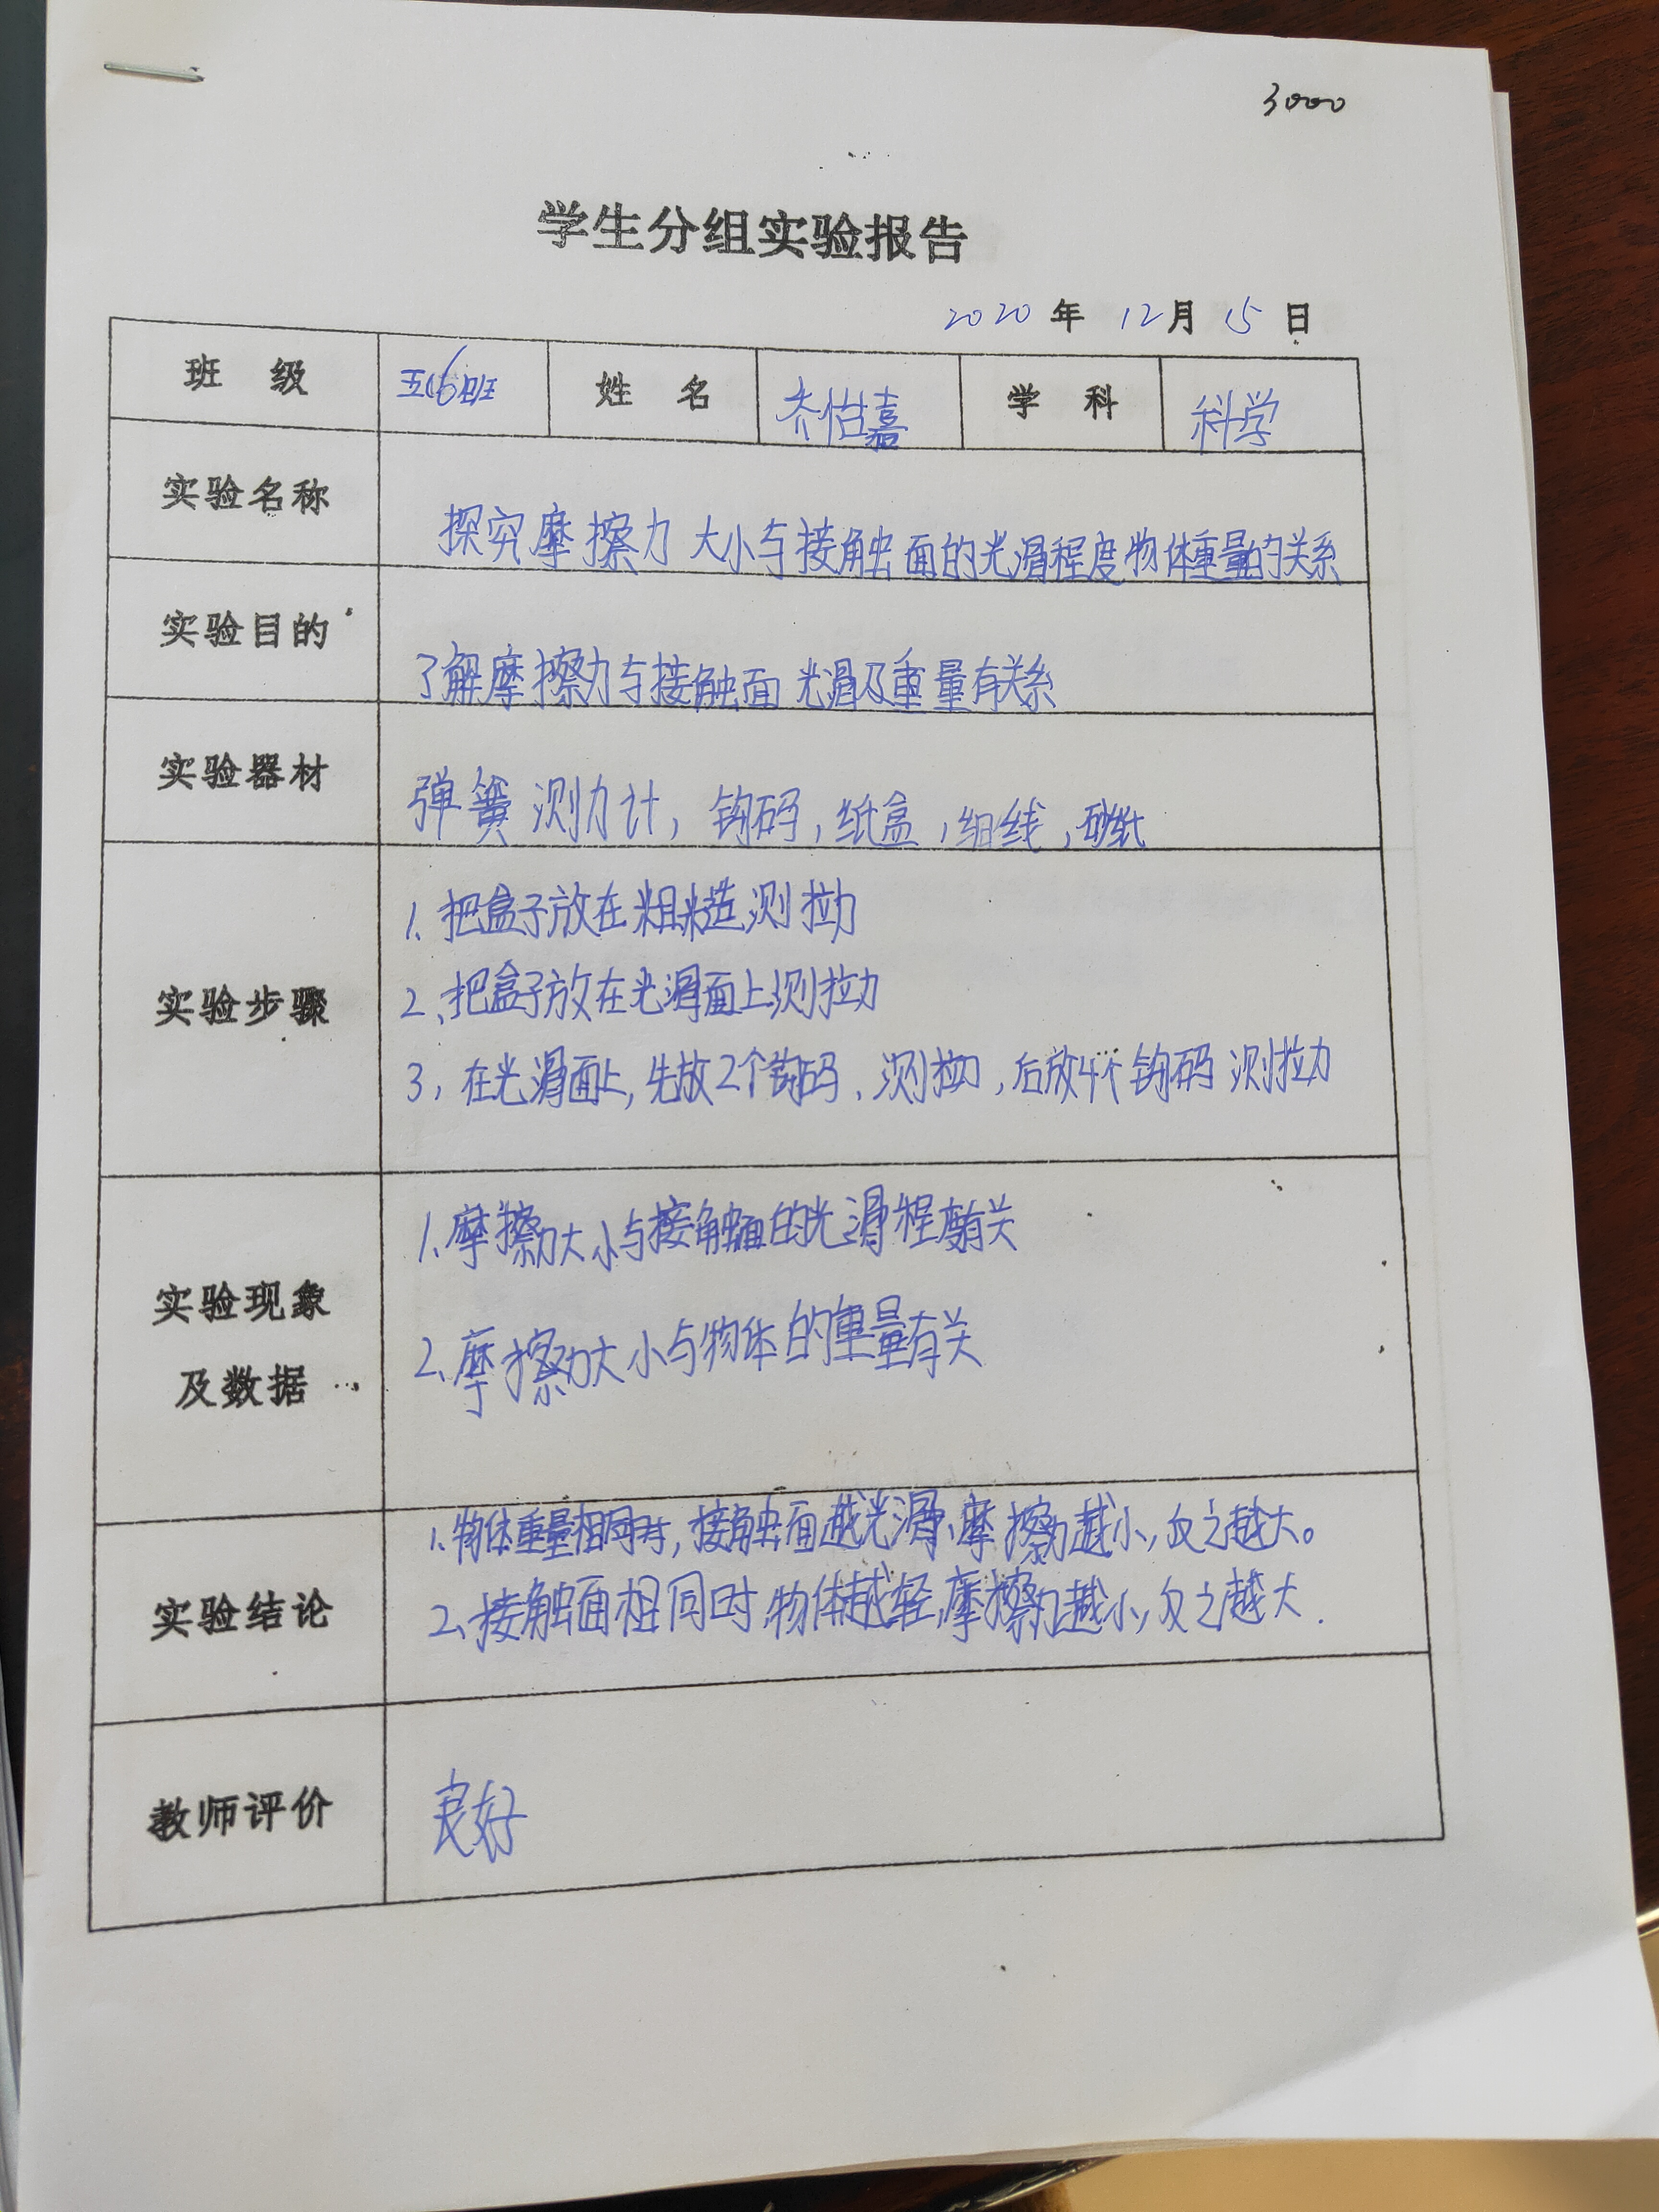 3000
学生分组实验报告
2020 年 12 月 15 日
班 级 五(6)班 姓 名 乔怡嘉 学 科 科学
实验名称 探究摩擦力大小与接触面的光滑程度物体重量的关系
实验目的 了解摩擦力与接触面光滑及重量有关系
实验器材 弹簧测力计,钩码,纸盒,细线,砂纸
实验步骤
1、把盒子放在粗糙测拉力
2、把盒子放在光滑面上测拉力
3,在光滑面上,先放2个钩码、测拉力,后放4个钩码测拉力
实验现象
及数据
1、摩擦力大小与接触面的光滑程度有关
2、摩擦力大小与物体的重量有关
实验结论
1、物体重量相同时,接触面越光滑、摩擦力越小,反之越大。
2、接触面相同时,物体越轻,摩擦力越小,反之越大.
教师评价 良好